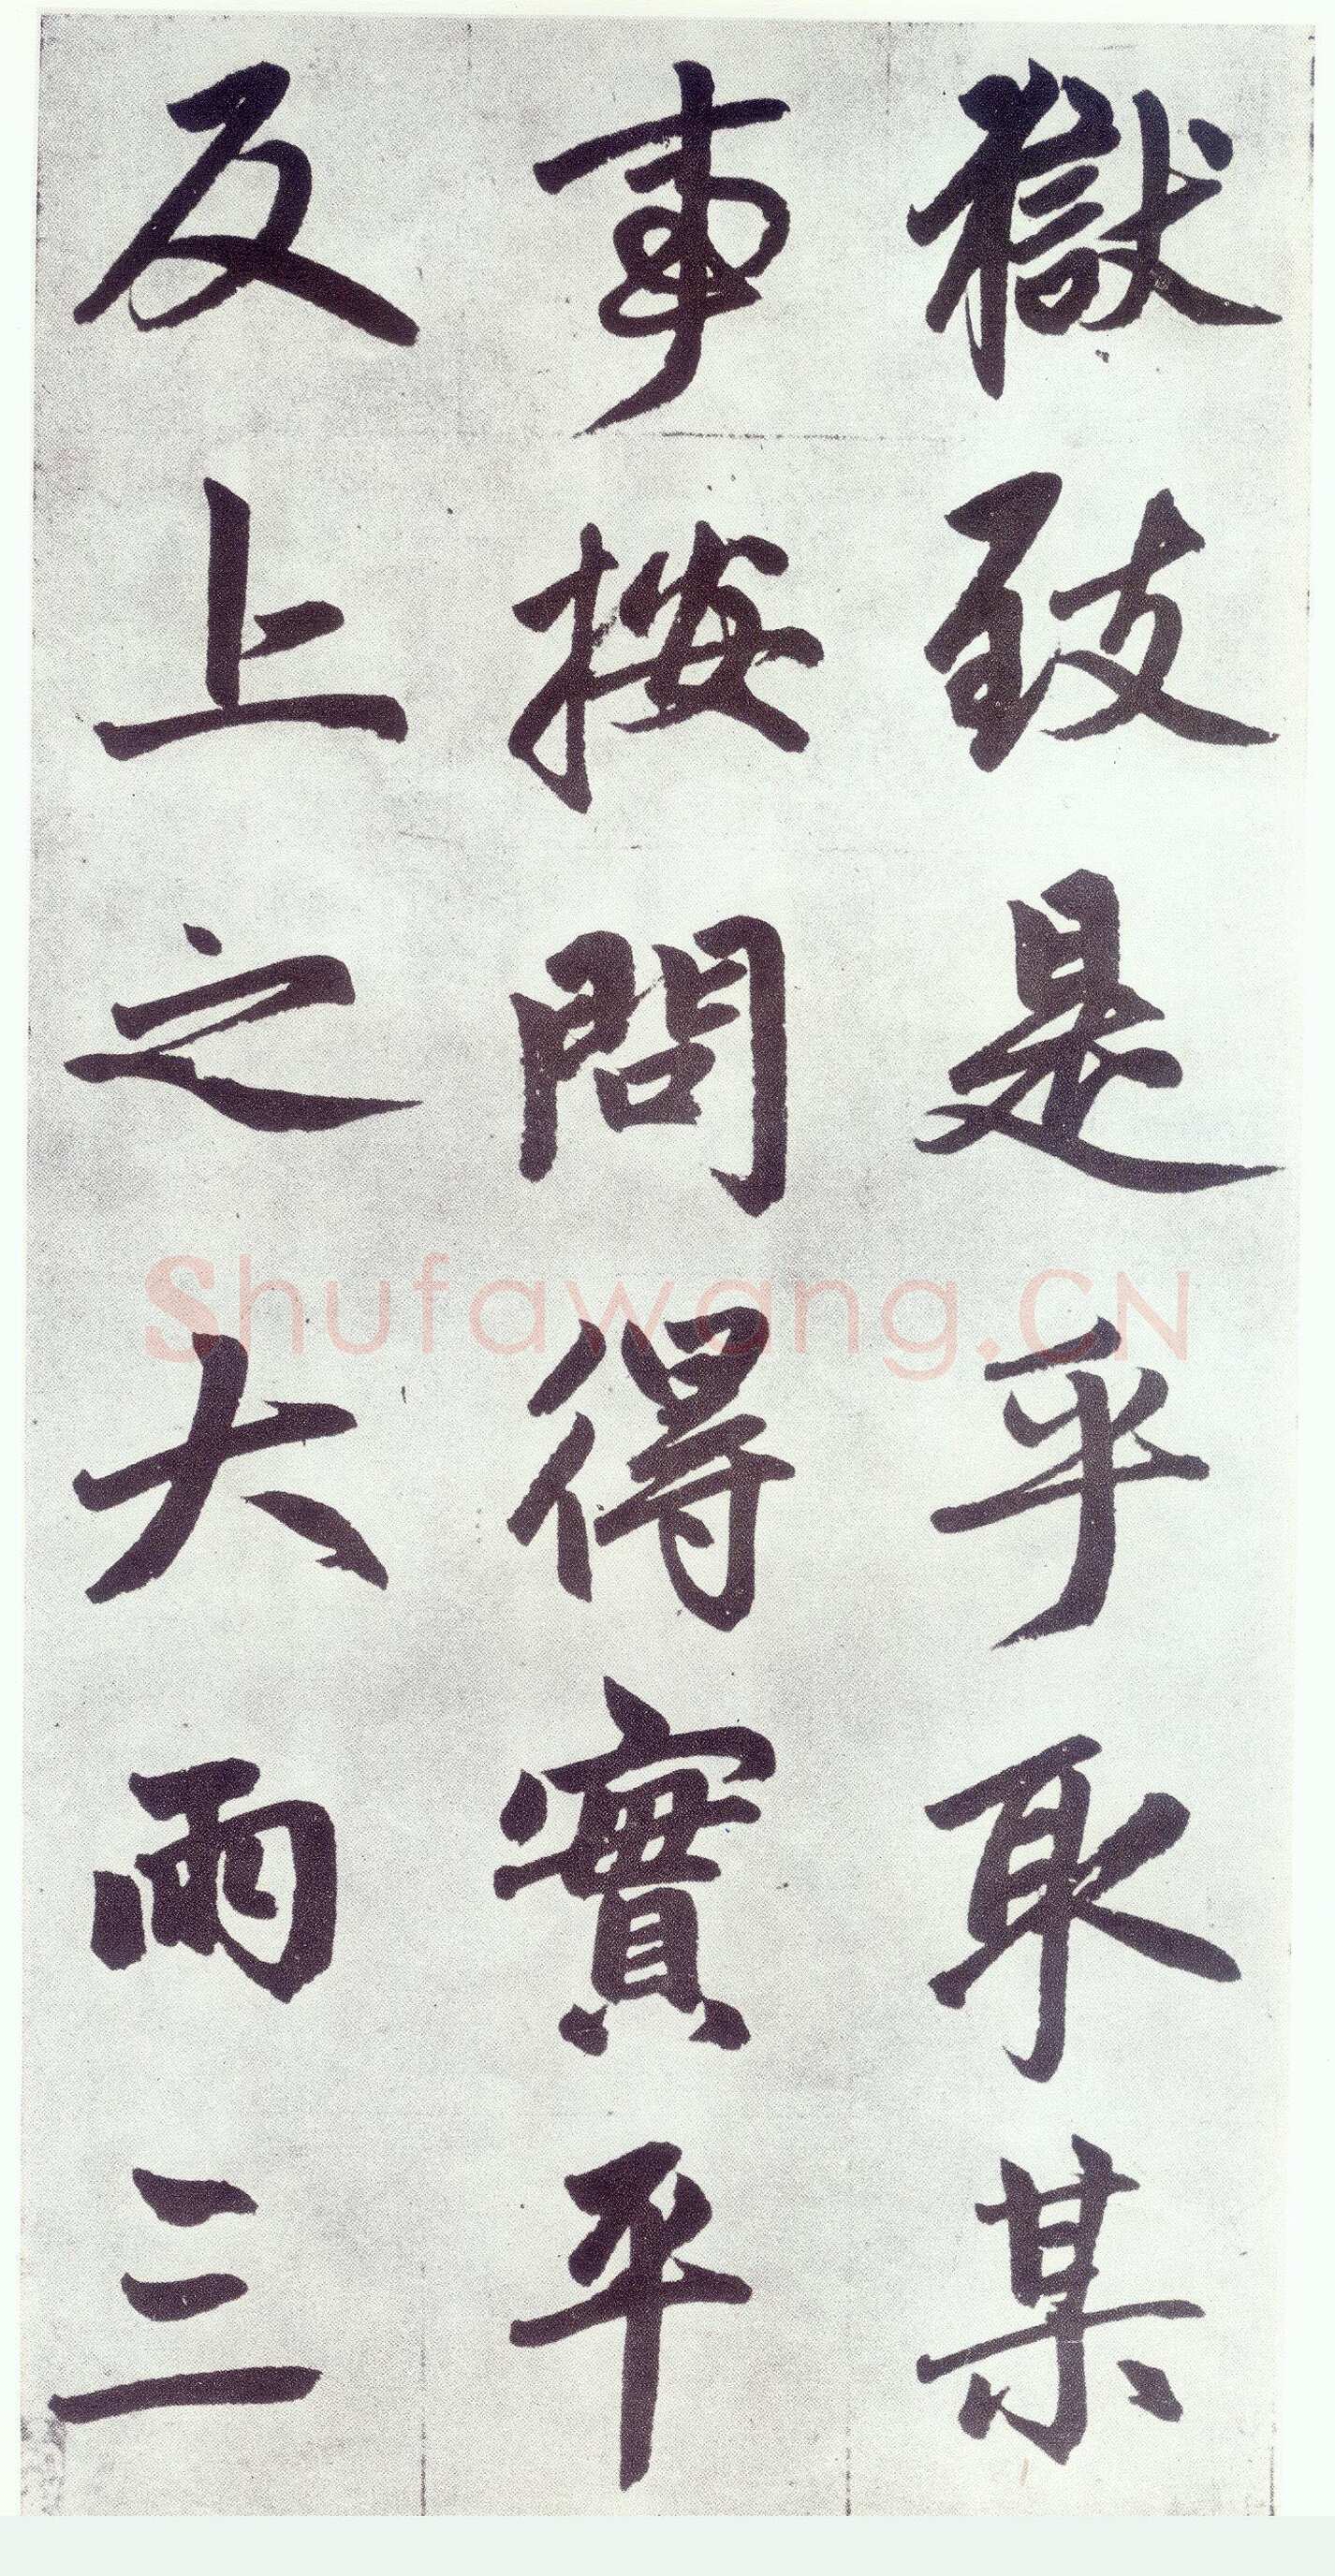 獄致是乎取某
事按問得實平
反上之大雨三
Shufawang.CN